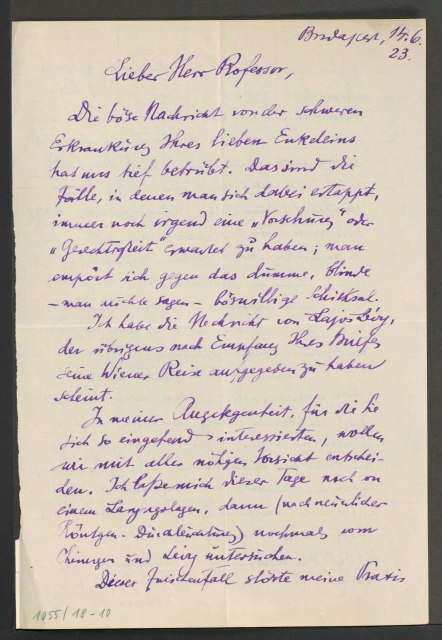 Budapest, 14.6.
23.
Lieber Herr Professor,
Die böse Nachricht von der schweren
Erkrankung Ihres lieben Enkeleins
hat uns tief betrübt. Das sind die
Fälle, in denen man sich dabei ertappt,
immer noch irgend eine „Vorsehung" oder
„Gerechtigkeit" erwartet zu haben; man
empört sich gegen das dumme, blinde
– man möchte sagen – böswillige Schicksal.
Ich habe die Nachricht von Lajos Lévy,
der übrigens nach Empfang Ihres Briefes
seine Wiener Reise aufgegeben zu haben
scheint.
In meiner Angelegenheit, für die Sie
sich so eingehend interessierten, wollen
wir mit aller nötigen Vorsicht entschei-
den. Ich laße mich dieser Tage noch von
einem Laryngologen, dann (nach neuerlicher
Röntgen-Durchleuchtung) nochmals vom
Chirurgen und Lévy untersuchen.
Dieser Zwischenfall störte meine Praxis
1055/18-10